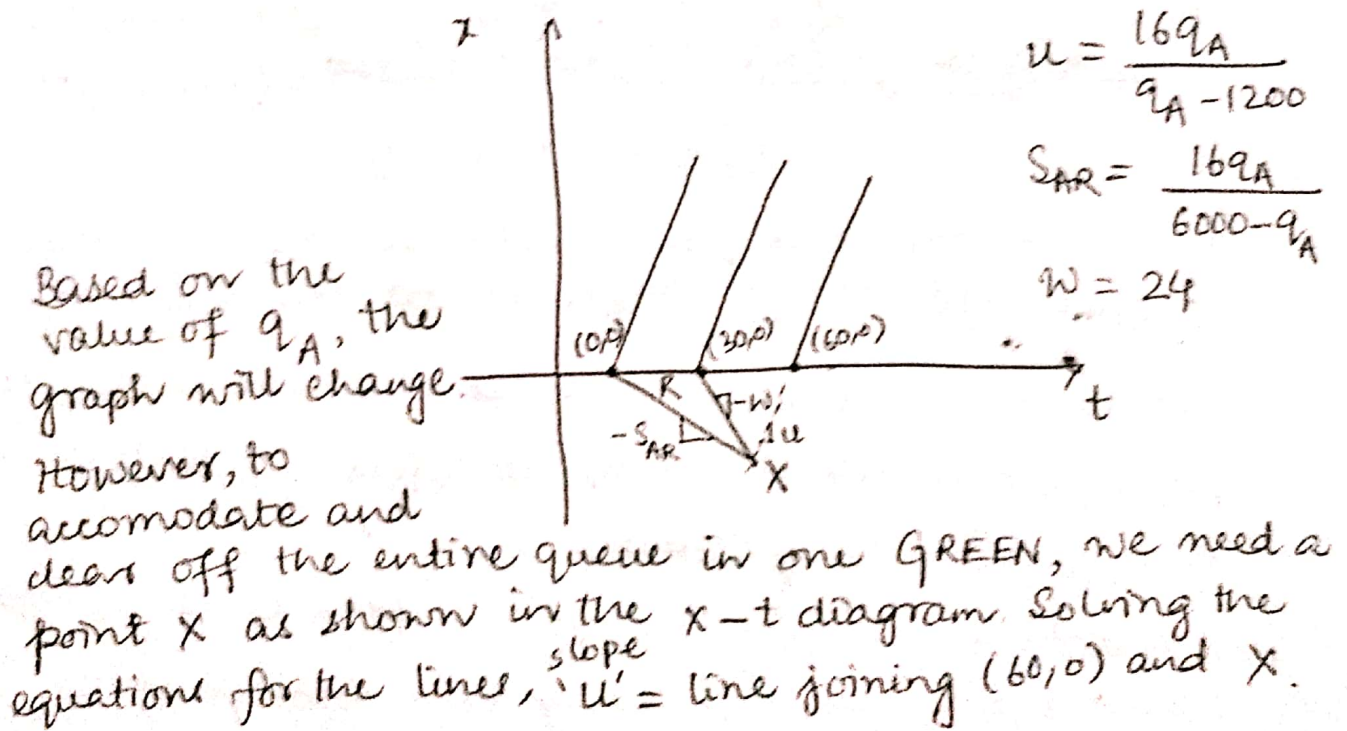 x
u = 16qA / qA - 1200
SAR = 16qA / 6000 - qA
w = 24
Based on the
value of qA, the
graph will change.
(0,0) (30,0) (60,0)
R -w; u
t
-SAR
X
However, to
accomodate and
clear off the entire queue in one GREEN, we need a
point X as shown in the x-t diagram. Solving the
equations for the lines, slope 'u' = line joining (60,0) and X.